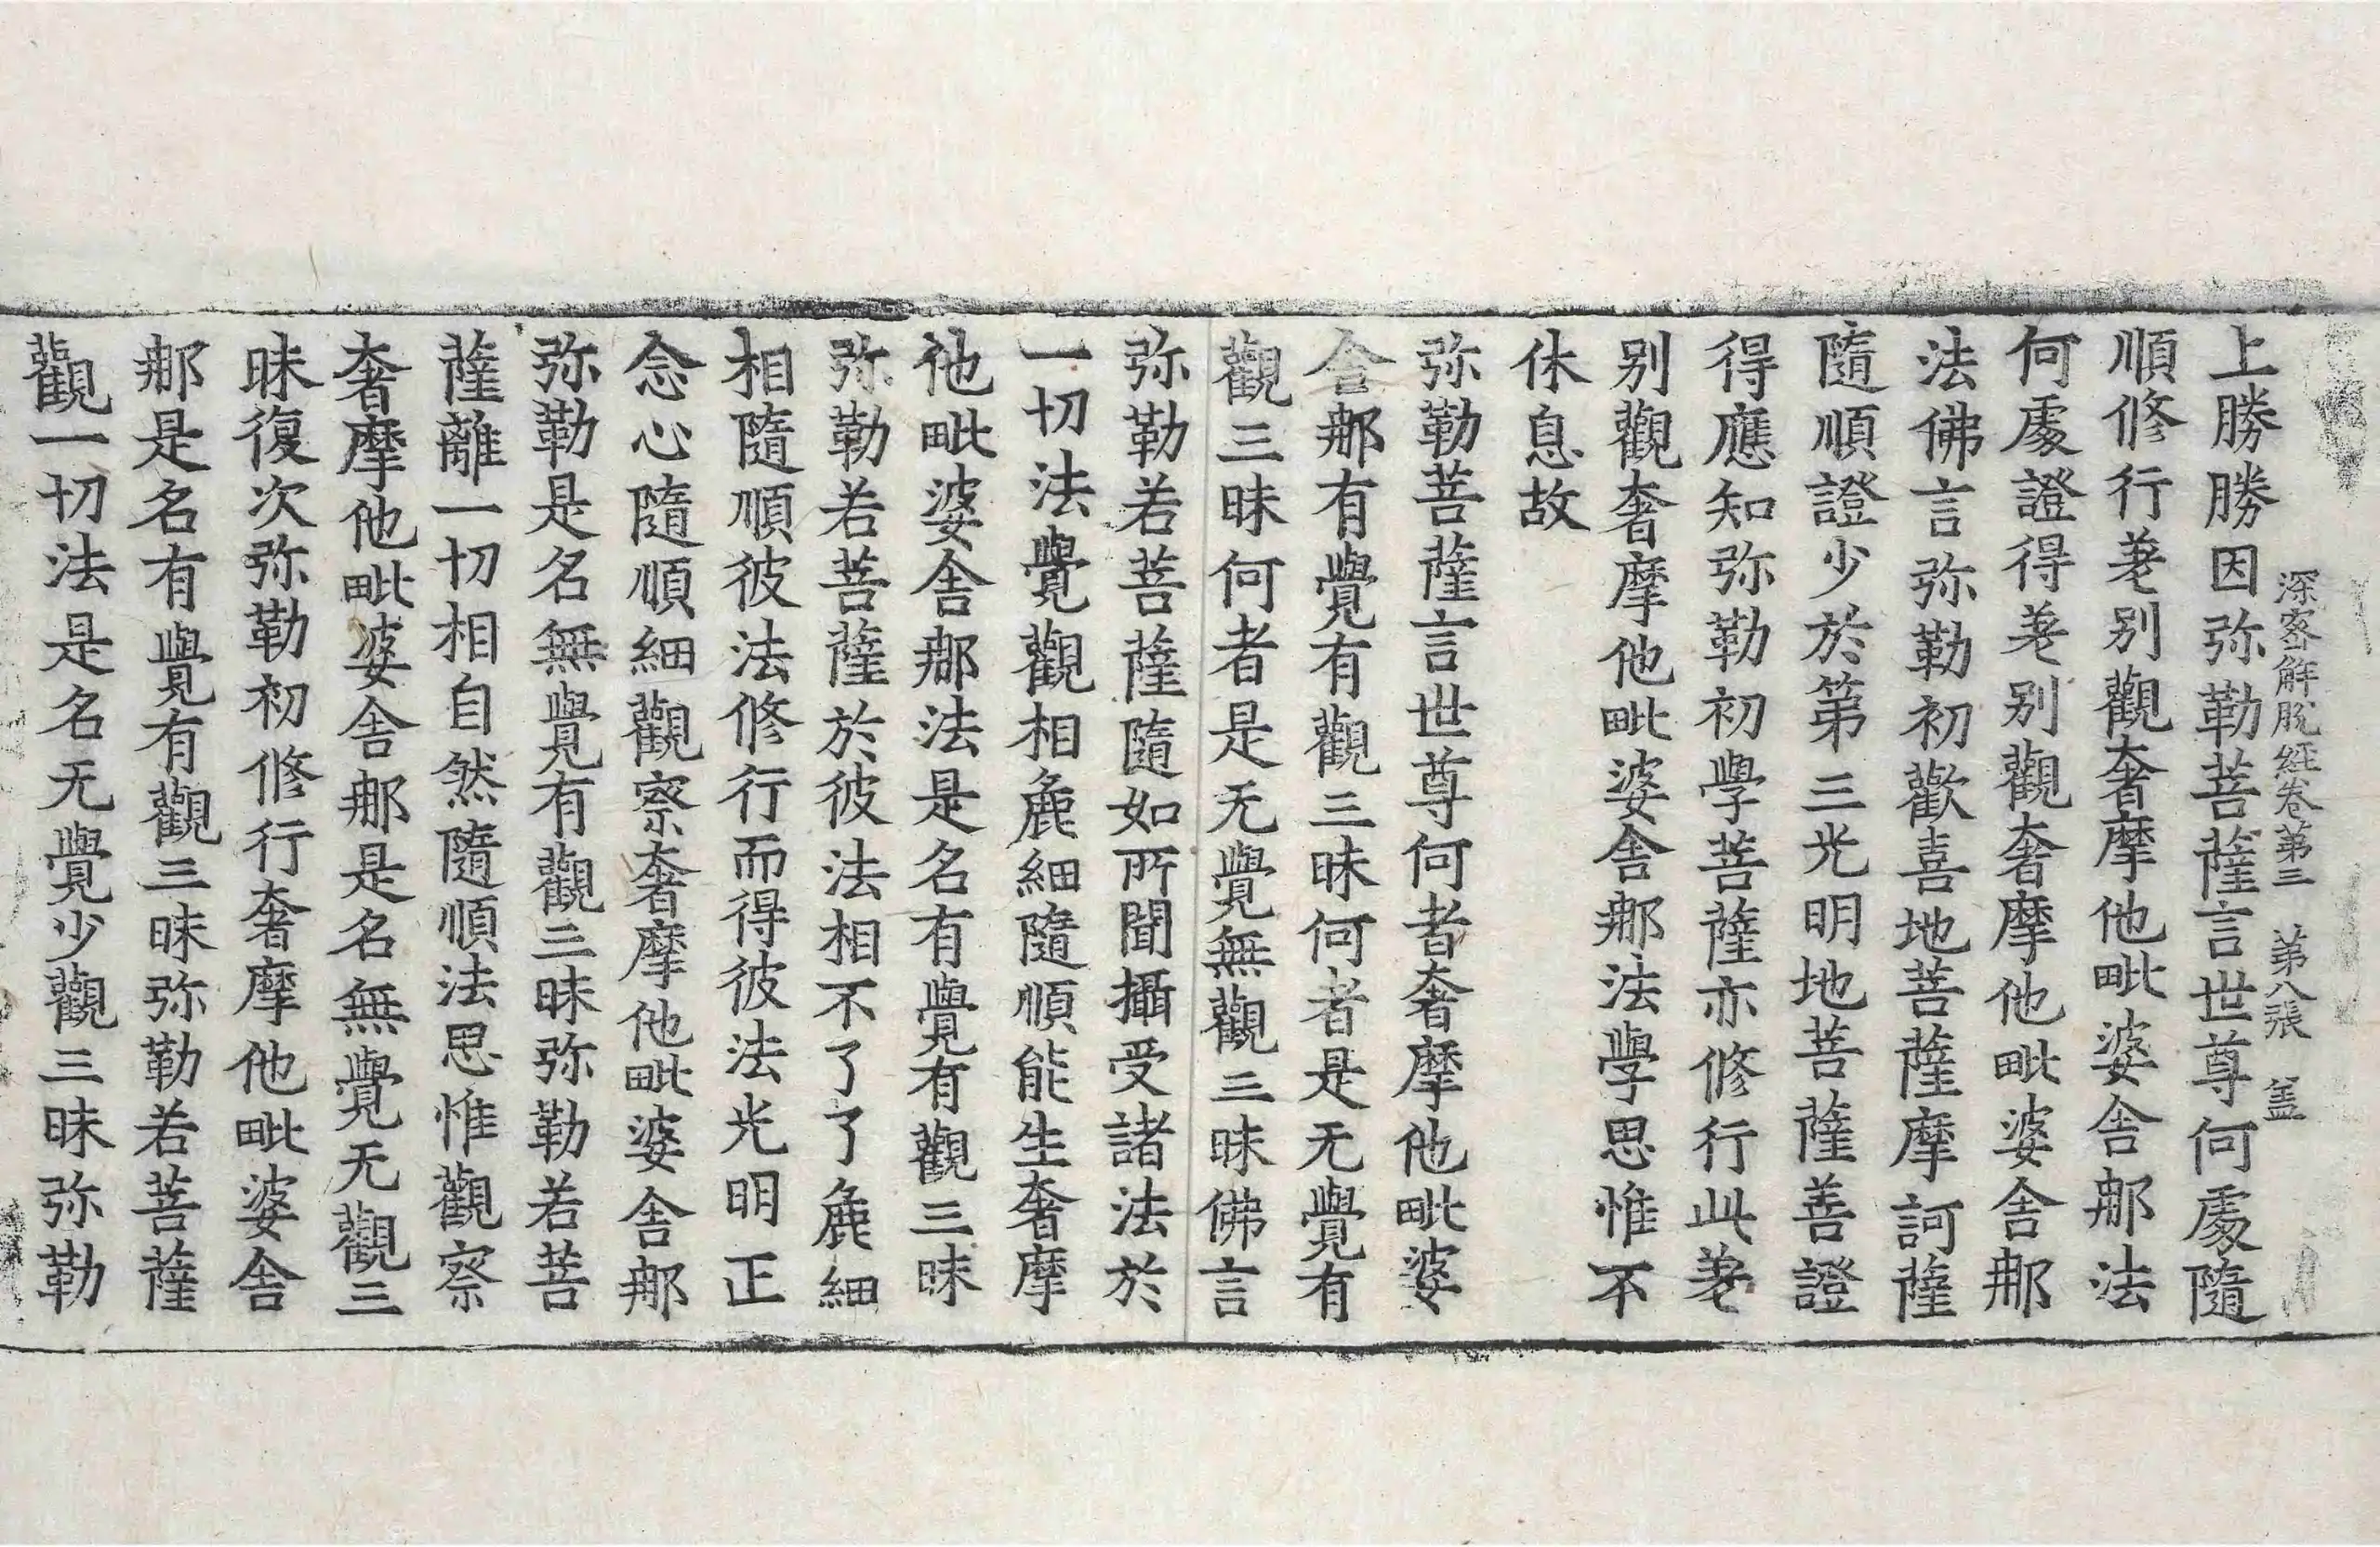 深密解脫經卷第三　第八張　盖
上勝勝因弥勒菩薩言世尊何處隨
順修行差別觀奢摩他毗婆舍那法
何處證得差別觀奢摩他毗婆舍那
法佛言弥勒初歡喜地菩薩摩訶薩
隨順證少於第三光明地菩薩善證
得應知弥勒初學菩薩亦修行此差
別觀奢摩他毗婆舍那法學思惟不
休息故
弥勒菩薩言世尊何者奢摩他毗婆
舍那有覺有觀三昧何者是无覺有
觀三昧何者是无覺無觀三昧佛言
弥勒若菩薩隨如所聞攝受諸法於
一切法覺觀相麁細隨順能生奢摩
他毗婆舍那法是名有覺有觀三昧
弥勒若菩薩於彼法相不了了麁細
相隨順彼法修行而得彼法光明正
念心隨順細觀察奢摩他毗婆舍那
弥勒是名無覺有觀三昧弥勒若菩
薩離一切相自然隨順法思惟觀察
奢摩他毗婆舍那是名無覺无觀三
昧復次弥勒初修行奢摩他毗婆舍
那是名有覺有觀三昧弥勒若菩薩
觀一切法是名无覺少觀三昧弥勒